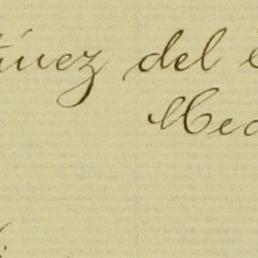 ínez del
Med